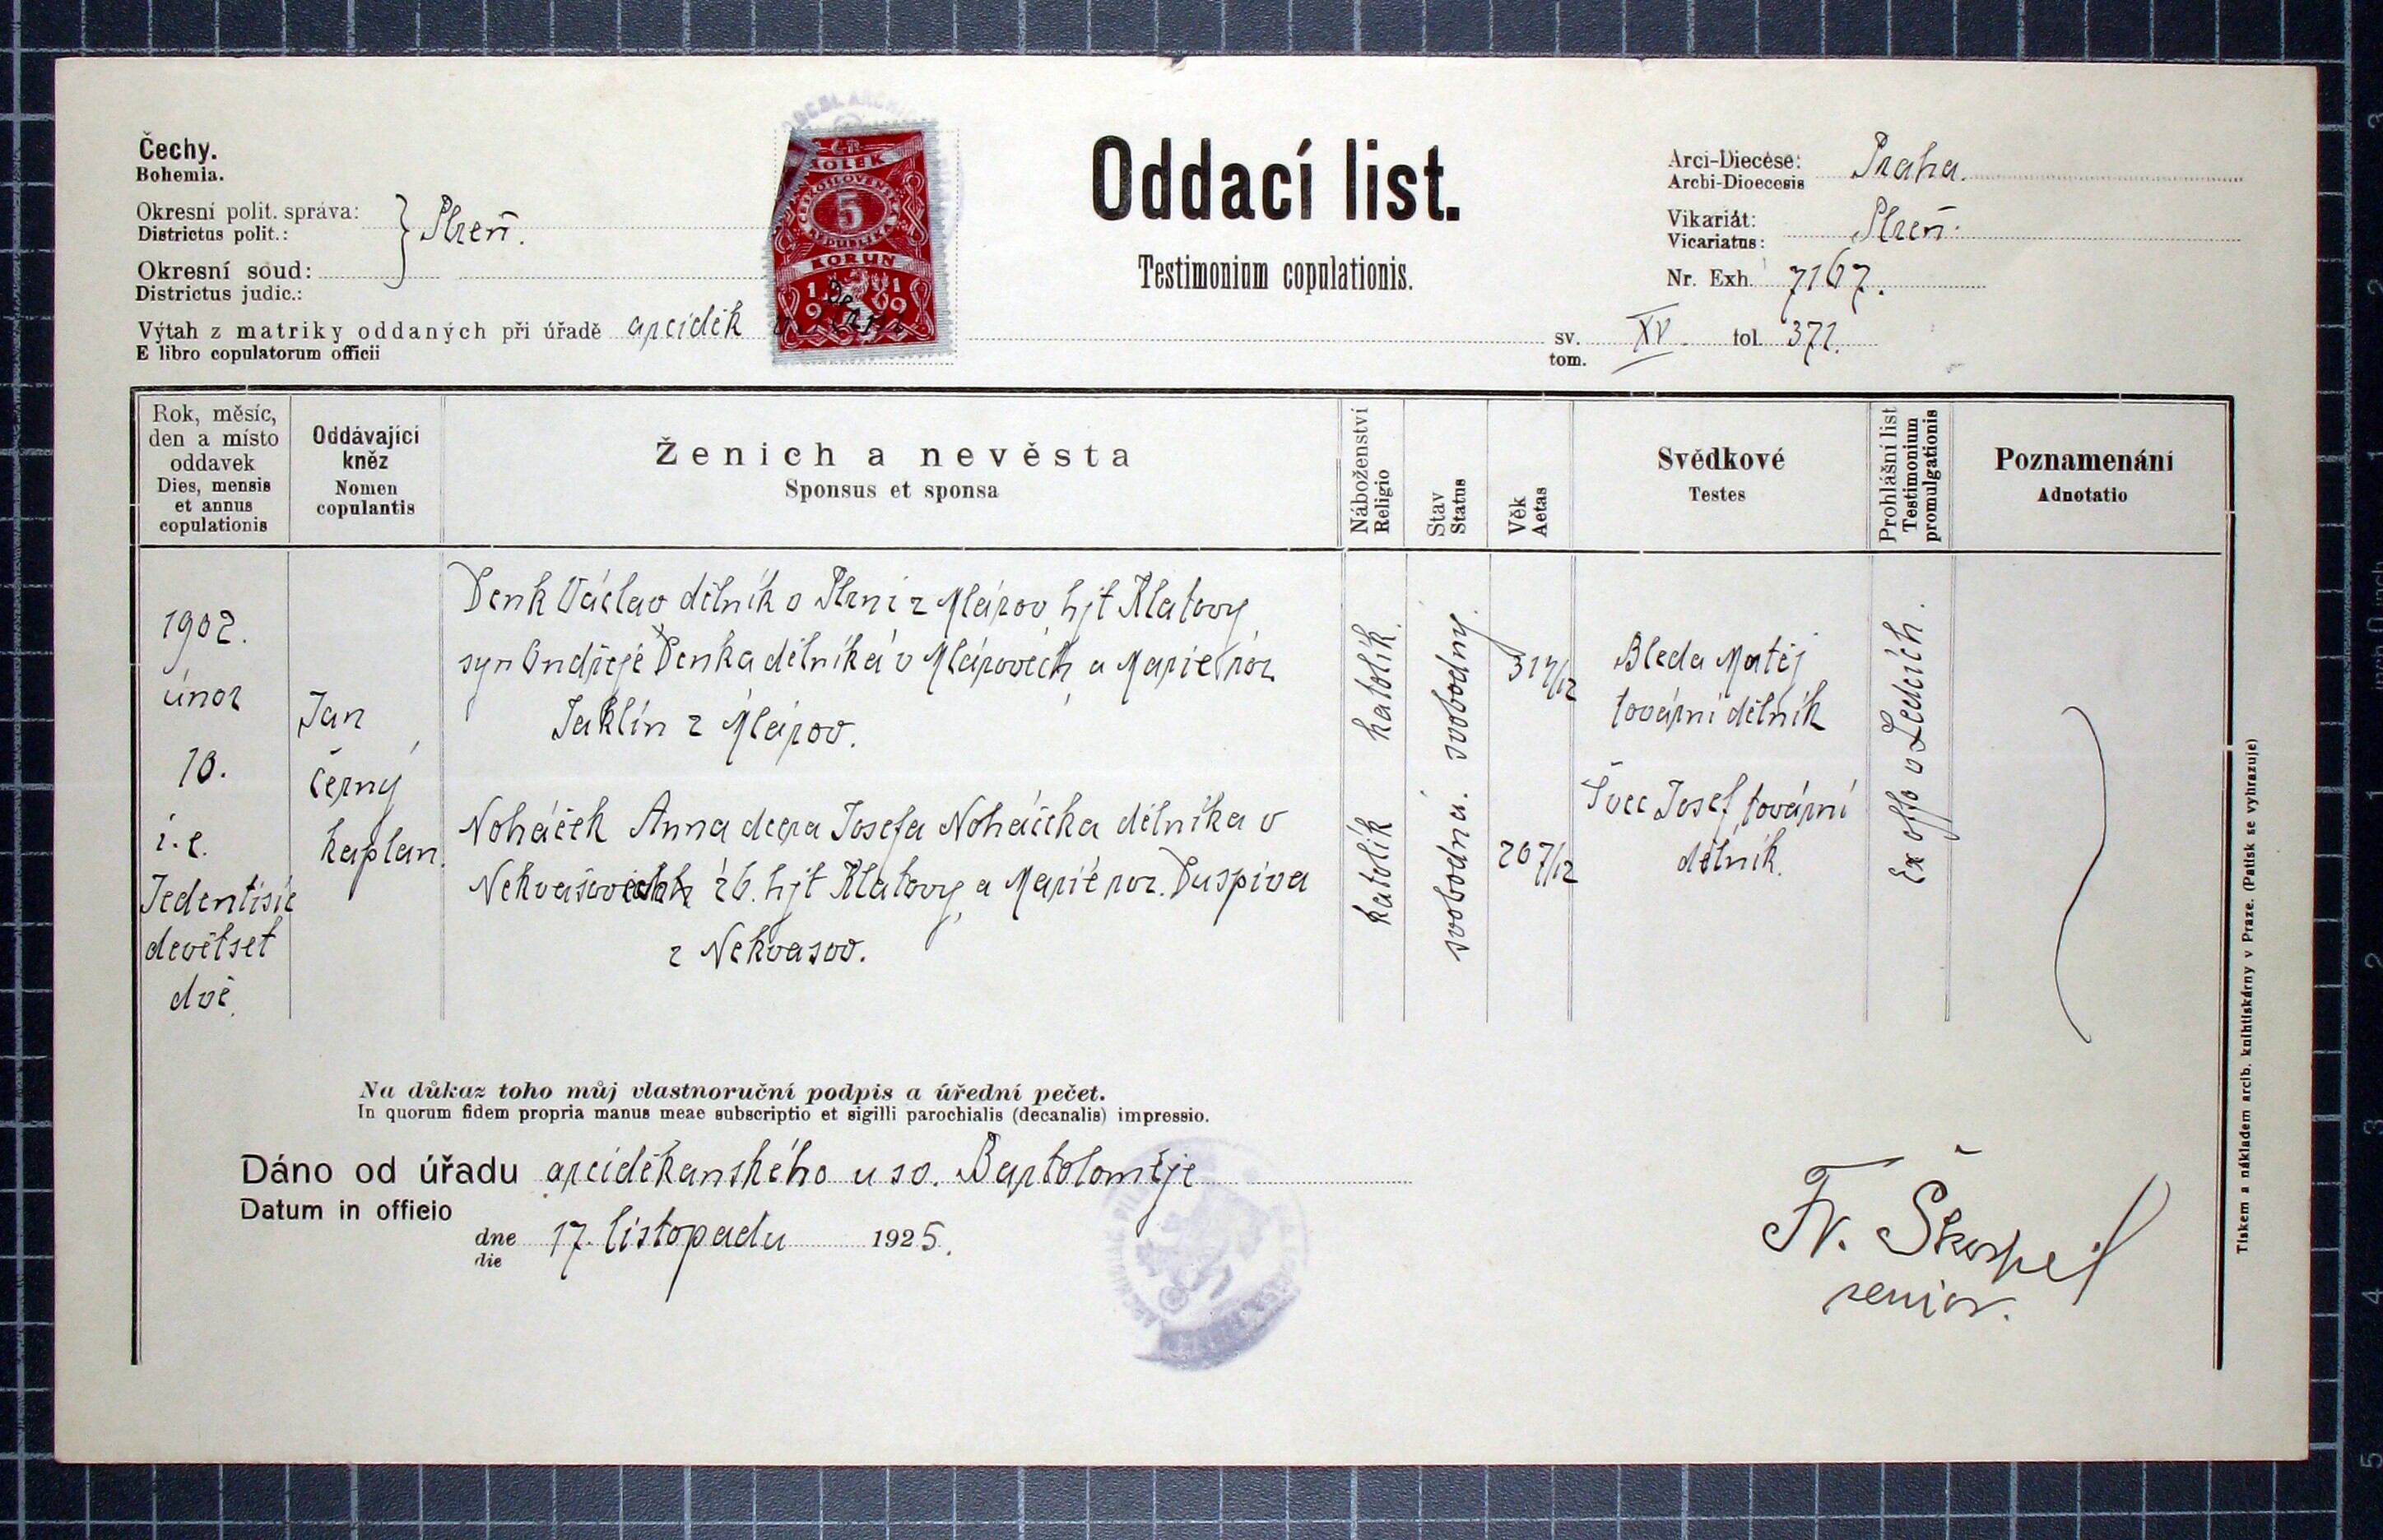 Čechy.
Bohemia.
Okresní polit. správa:
Districtus polit.:
Plzeň.
Okresní soud:
Districtus judic.:
Výtah z matriky oddaných při úřadě arciděk
E libro copulatorum officii
KOLEK
ČESKOSLOVENSKÁ
5
REPUBLIKA
KORUN
1919
Oddací list.
Testimonium copulationis.
Arci-Diecése: Praha.
Archi-Dioecesis
Vikariát: Plzeň.
Vicariatus:
Nr. Exh. 7167.
sv. XV. fol. 371.
tom.
Rok, měsíc,
den a místo
oddavek
Dies, mensis
et annus
copulationis
Oddávající
kněz
Nomen
copulantis
Ženich a nevěsta
Sponsus et sponsa
Náboženství
Religio
Stav
Status
Věk
Aetas
Svědkové
Testes
Prohlášní list
Testimonium
promulgationis
Poznamenání
Adnotatio
1902.
únor
10.
i. e.
Jedentisíc
devětset
dvě
Jan
Černý
kaplan.
Denk Václav dělník v Plzni z Mlázov hjt Klatovy
syn Ondřeje Denka dělníka v Mlázovech a Marie roz.
Jaklín z Mlázov.
Noháček Anna dcera Josefa Noháčka dělníka v
Nekvasovech č 6. hjt Klatovy a Marie roz. Duspiva
z Nekvasov.
katolík.
katolík
svobodný.
svobodná.
31 7/12
20 7/12
Bleda Matěj
tovární dělník
Švec Josef tovární
dělník.
Ex offo v Ledcích.
Na důkaz toho můj vlastnoruční podpis a úřední pečet.
In quorum fidem propria manus meae subscriptio et sigilli parochialis (decanalis) impressio.
Dáno od úřadu arciděkanského u sv. Bartoloměje
Datum in officio
dne 17. listopadu 1925.
die
Fr.
senior.
Tiskem a nákladem arcib. knihtiskárny v Praze. (Patisk se vyhrazuje)